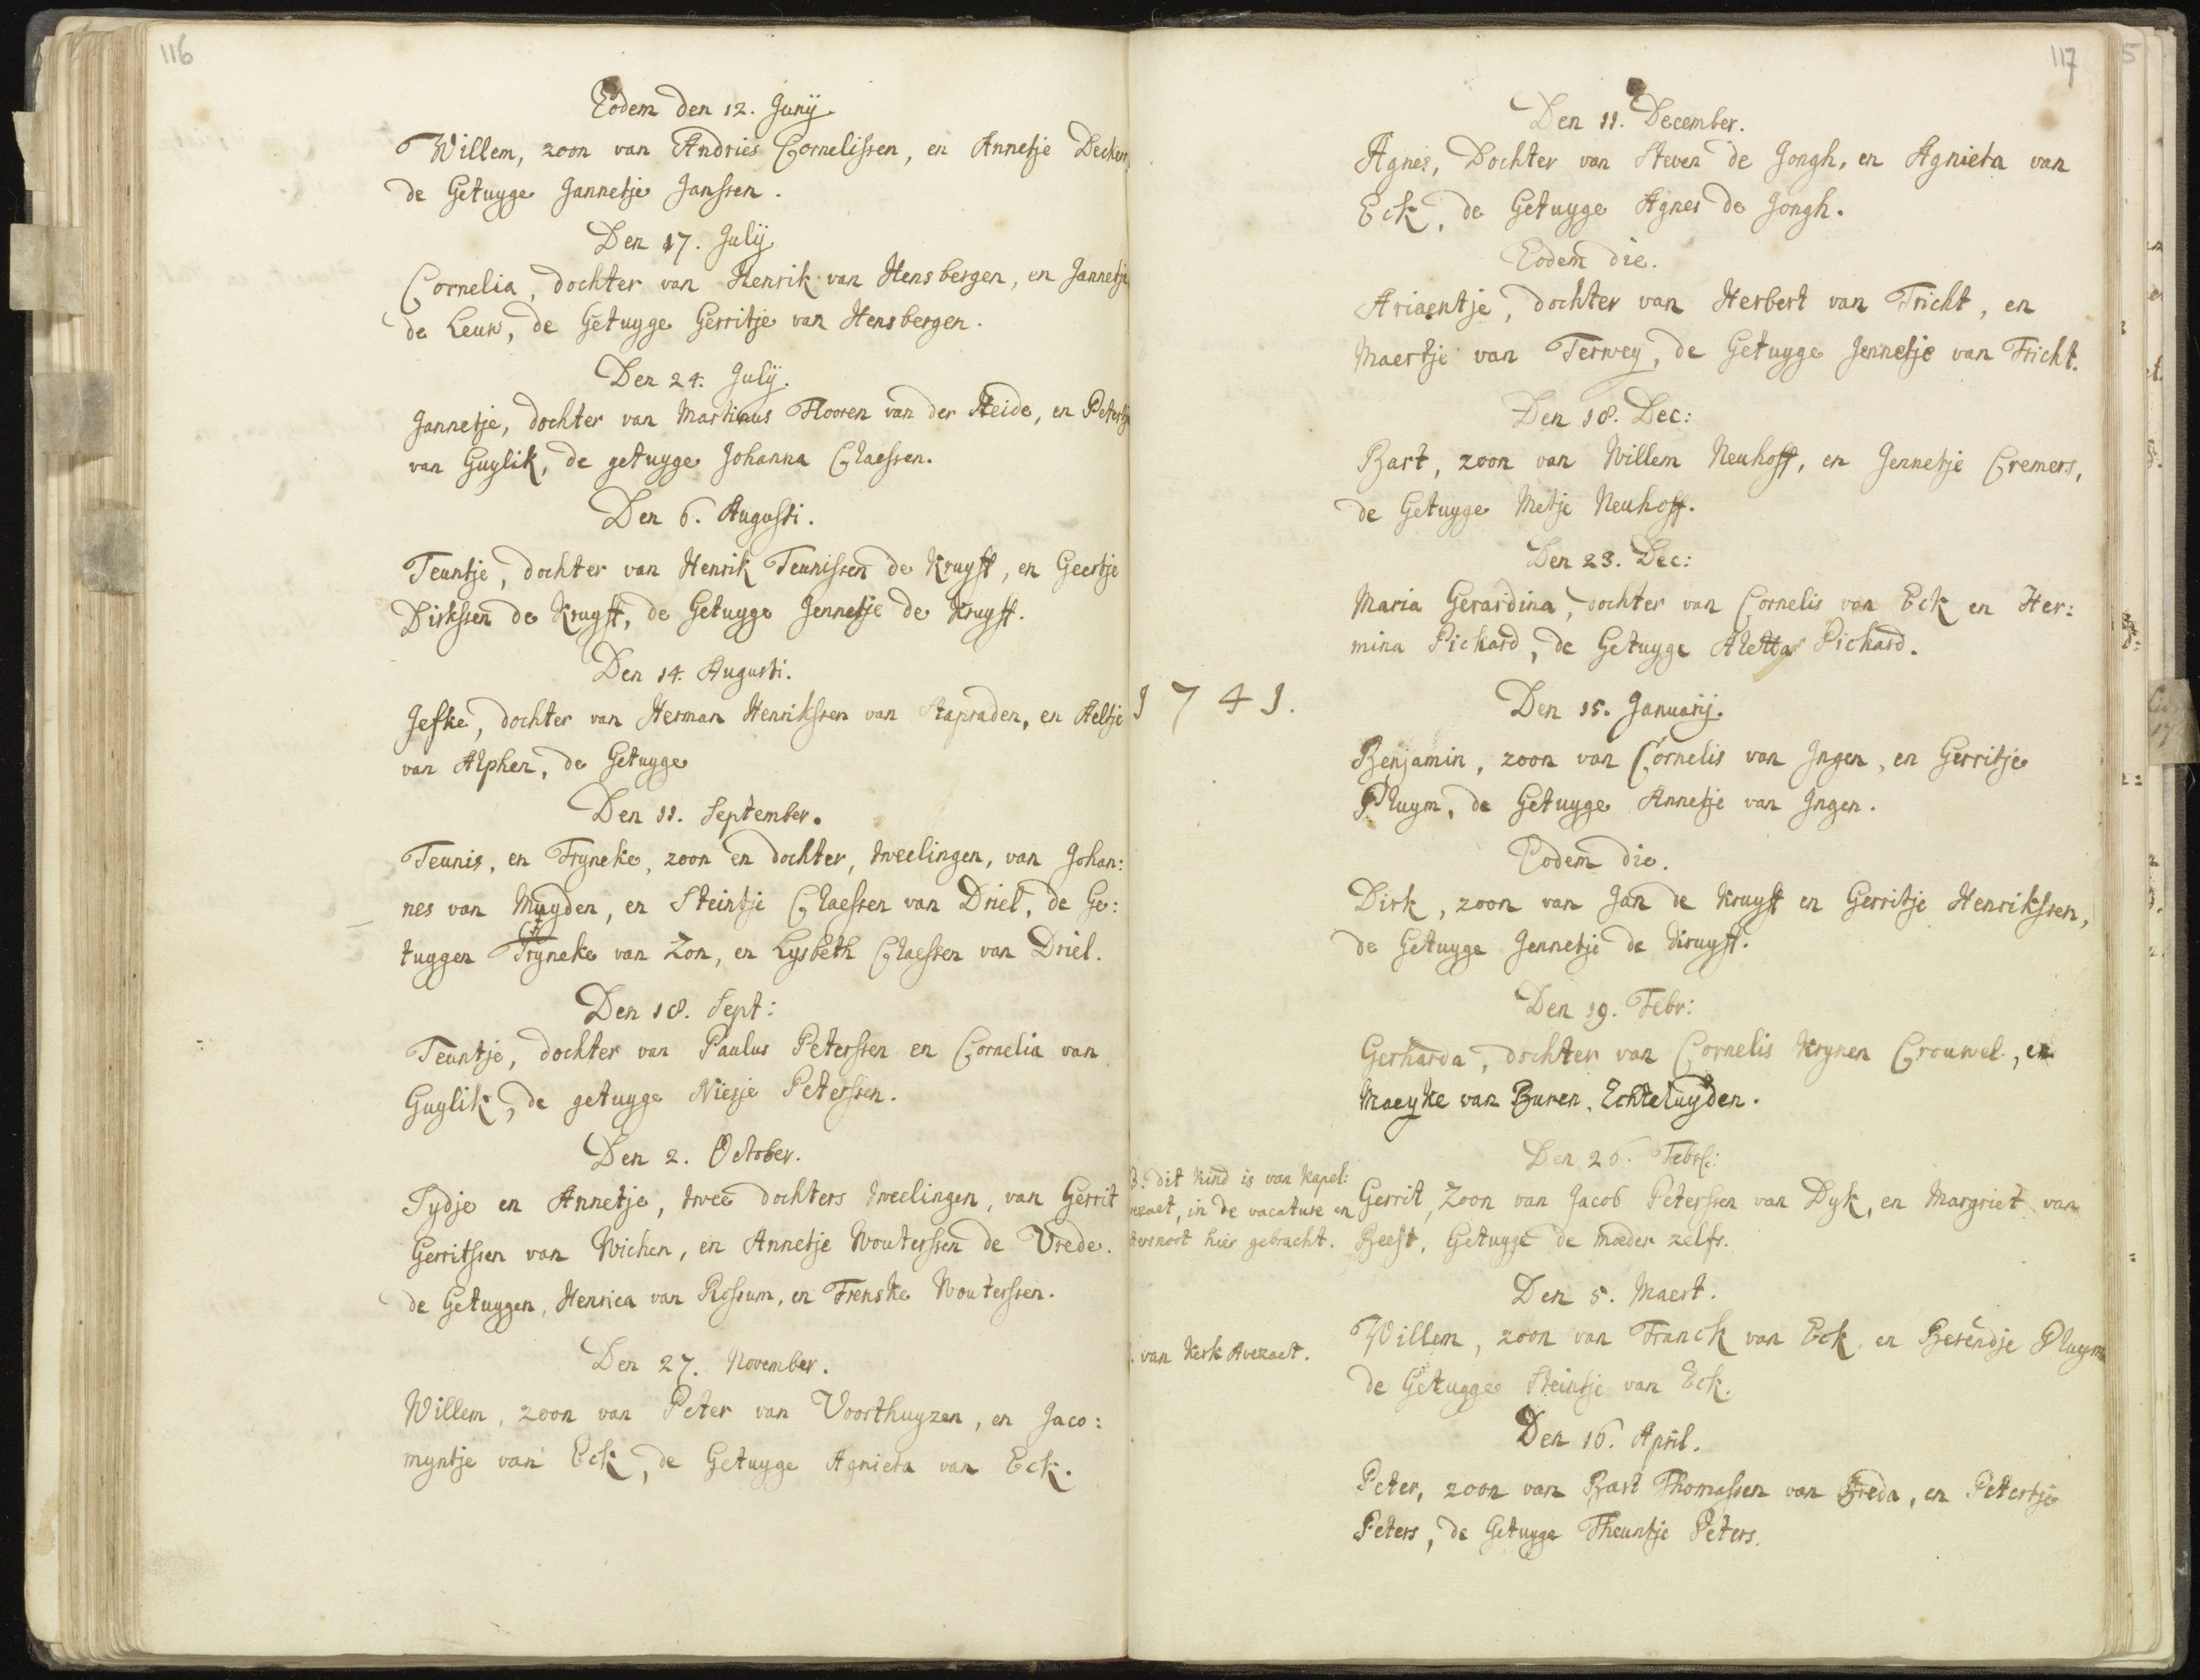 116
Eodem den 12. Junij.
Willem, zoon van Andries Cornelissen, en Annetje Decken,
de Getuyge Jannetje Janssen.
Den 17. Julij
Cornelia, dochter van Henrik van Hensbergen, en Jannetje
de Leuw, de Getuyge Gerritje van Hensbergen.
Den 24. Julij.
Jannetje, dochter van Martinus Flooren van der Heide, en Petertje
van Guylik, de getuyge Johanna Claessen.
Den 6. Augusti.
Teuntje, dochter van Henrik Teunissen de Kruyff, en Geertje
Dirkssen de Kruyff, de Getuyge Jennetje de Kruyff.
Den 14. Augusti.
Jefke, dochter van Herman Henrikssen van Stapraden, en Aeltje
van Alphen, de Getuyge
Den 11. September.
Teunis, en Tryneke, zoon en dochter, tweelingen, van Johan:
nes van Muyden, en Steintje Claessen van Driel, de Ge:
tuygen Tryneke van Zon, en Lysbeth Claessen van Driel.
Den 18. Sept:
Teuntje, dochter van Paulus Peterssen en Cornelia van
Guylik, de getuyge Niesje Peterssen.
Den 2. October.
Tydje en Annetje, twee dochters tweelingen, van Gerrit
Gerritssen van Wichen, en Annetje Wouterssen de Vrede.
de Getuygen, Henrica van Rossum, en Frenske Wouterssen.
Den 27. November.
Willem, zoon van Peter van Voorthuyzen, en Jaco:
myntje van Eck, de Getuyge Agnieta van Eck.
117
Den 11. December.
Agnes, Dochter van Steven de Jongh, en Agnieta van
Eck, de Getuyge Agnes de Jongh.
Eodem die.
Ariaentje, dochter van Herbert van Tricht, en
Maertje van Terwey, de Getuyge Jennetje van Tricht.
Den 18. Dec:
Bart, zoon van Willem Neuhoff, en Jennetje Cremers,
de Getuyge Metje Neuhoff.
Den 23. Dec:
Maria Gerardina, dochter van Cornelis van Eck en Her:
mina Pickard, de Getuyge Aletta Pickard.
1741.
Den 15. Januarij.
Benjamin, zoon van Cornelis van Ingen, en Gerritje
Pluym, de Getuyge Annetje van Ingen.
Eodem die.
Dirk, zoon van Jan de Kruyff en Gerritje Henrikssen,
de Getuyge Jennetje de Kruyff.
Den 19. Febr:
Gerharda, dochter van Cornelis Krynen Crouwel, en
Maeyke van Buren, Echteluyden.
Den 26. Febr:
dit kind is van Kapel:
in de vacature en
hier gebracht.
Gerrit, Zoon van Jacob Peterssen van Dyk, en Margriet van
Beest, Getuyge de moeder zelfs.
Den 5. Maert.
van Kerk Avezaet.
Willem, zoon van Franck van Eck, en Berendje Pluym
de Getuyge Steintje van Eck.
Den 16. April.
Peter, zoon van Bart Thomassen van Breda, en Petertje
Peters, de Getuyge Theuntje Peters.